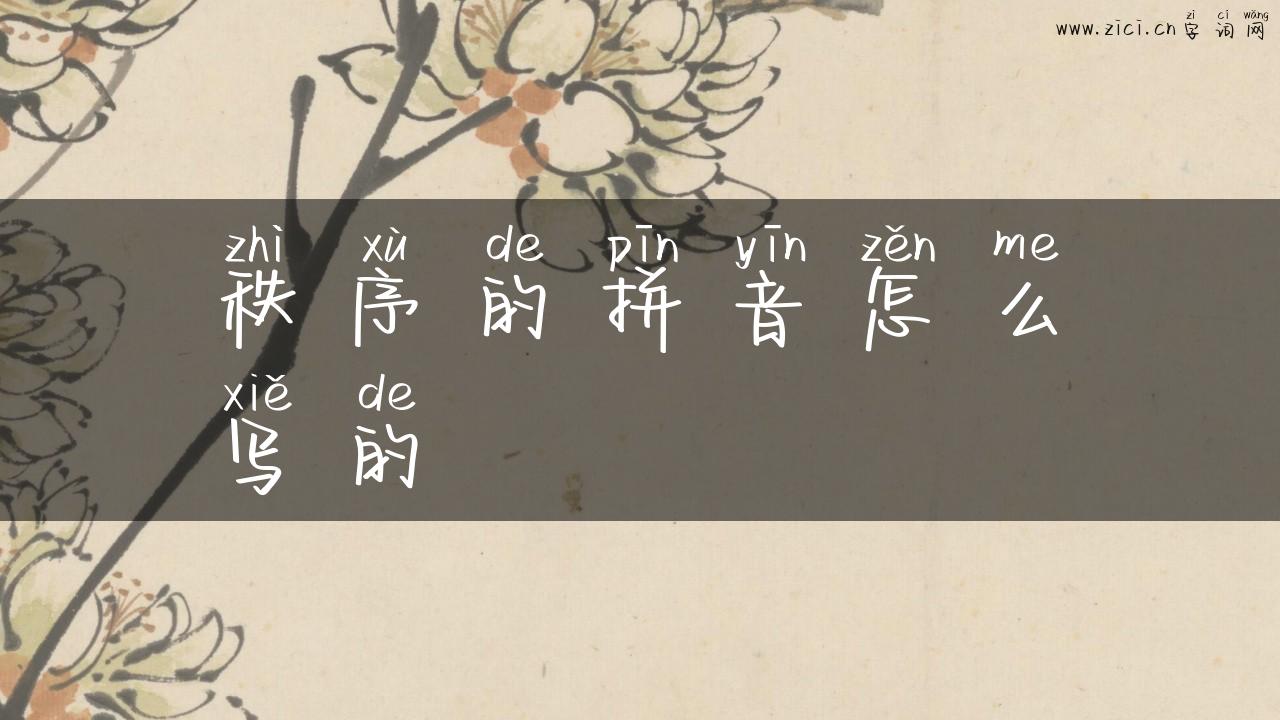 zì cí wǎng
www.zici.cn 字词网
zhì xù de pīn yīn zěn me
秩序的拼音怎么
xiě de
写的